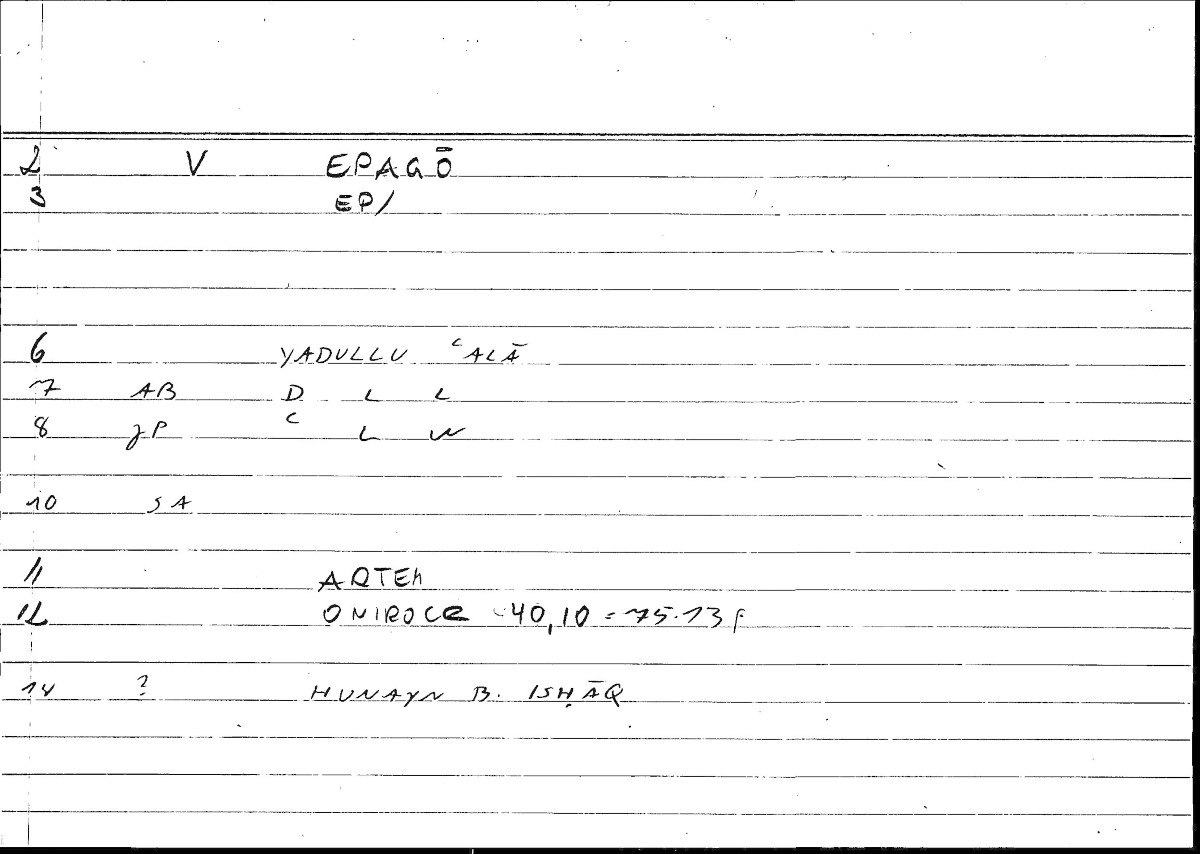 2 V EPAGŌ
3 EP/
6 YADULLU ʿALĀ
7 AB D L L
8 JP ʿ L W
10 SA
11 ARTEM
12 ONIROCR 40,10 = 75.13 f
14 ? HUNAYN B. ISḤĀQ